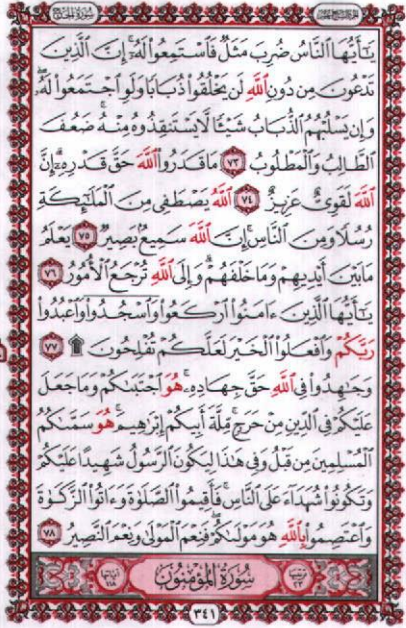 سورة الحج
الجزء السابع عشر
يَـٰٓأَيُّهَا ٱلنَّاسُ ضُرِبَ مَثَلٌ فَٱسْتَمِعُوا۟ لَهُۥٓ إِنَّ ٱلَّذِينَ
تَدْعُونَ مِن دُونِ ٱللَّهِ لَن يَخْلُقُوا۟ ذُبَابًا وَلَوِ ٱجْتَمَعُوا۟ لَهُۥ
وَإِن يَسْلُبْهُمُ ٱلذُّبَابُ شَيْـًٔا لَّا يَسْتَنقِذُوهُ مِنْهُ ضَعُفَ
ٱلطَّالِبُ وَٱلْمَطْلُوبُ ٧٣ مَا قَدَرُوا۟ ٱللَّهَ حَقَّ قَدْرِهِۦٓ إِنَّ
ٱللَّهَ لَقَوِىٌّ عَزِيزٌ ٧٤ ٱللَّهُ يَصْطَفِى مِنَ ٱلْمَلَـٰٓئِكَةِ
رُسُلًا وَمِنَ ٱلنَّاسِ إِنَّ ٱللَّهَ سَمِيعٌۢ بَصِيرٌ ٧٥ يَعْلَمُ
مَا بَيْنَ أَيْدِيهِمْ وَمَا خَلْفَهُمْ وَإِلَى ٱللَّهِ تُرْجَعُ ٱلْأُمُورُ ٧٦
يَـٰٓأَيُّهَا ٱلَّذِينَ ءَامَنُوا۟ ٱرْكَعُوا۟ وَٱسْجُدُوا۟ وَٱعْبُدُوا۟
رَبَّكُمْ وَٱفْعَلُوا۟ ٱلْخَيْرَ لَعَلَّكُمْ تُفْلِحُونَ ۩ ٧٧
وَجَـٰهِدُوا۟ فِى ٱللَّهِ حَقَّ جِهَادِهِۦ هُوَ ٱجْتَبَىٰكُمْ وَمَا جَعَلَ
عَلَيْكُمْ فِى ٱلدِّينِ مِنْ حَرَجٍ مِّلَّةَ أَبِيكُمْ إِبْرَٰهِيمَ هُوَ سَمَّىٰكُمُ
ٱلْمُسْلِمِينَ مِن قَبْلُ وَفِى هَـٰذَا لِيَكُونَ ٱلرَّسُولُ شَهِيدًا عَلَيْكُمْ
وَتَكُونُوا۟ شُهَدَآءَ عَلَى ٱلنَّاسِ فَأَقِيمُوا۟ ٱلصَّلَوٰةَ وَءَاتُوا۟ ٱلزَّكَوٰةَ
وَٱعْتَصِمُوا۟ بِٱللَّهِ هُوَ مَوْلَىٰكُمْ فَنِعْمَ ٱلْمَوْلَىٰ وَنِعْمَ ٱلنَّصِيرُ ٧٨
ترتيبها ٢٣ سُورَةُ المُؤْمِنُونَ آياتها ١١٨
٣٤١